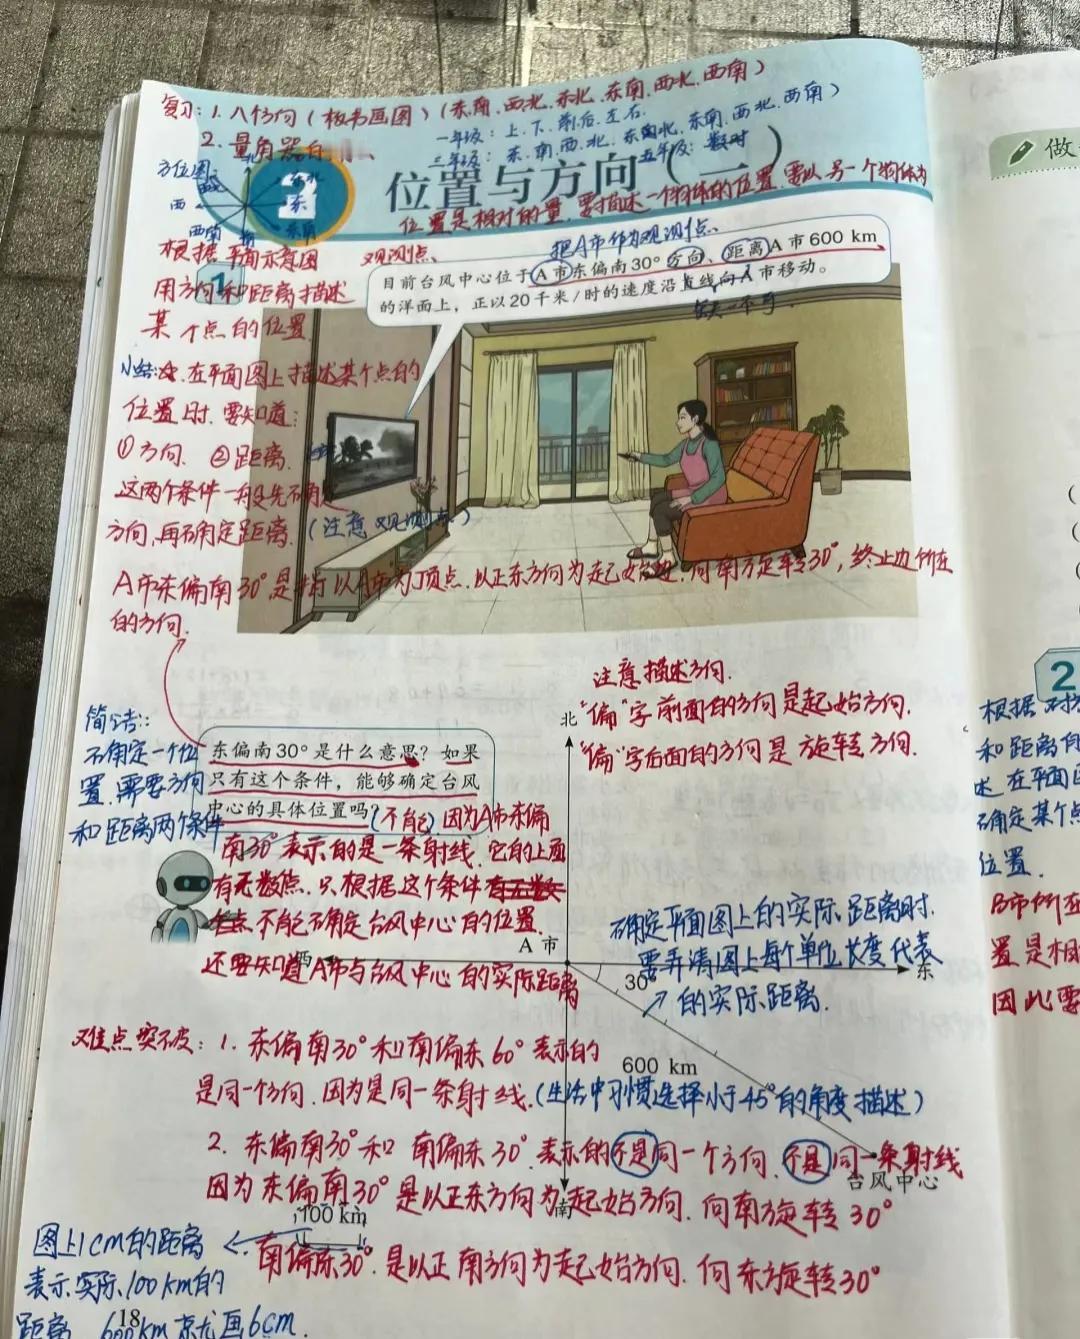 复习：1. 八个方向（板书画图）（东.南.西.北.东北.东南.西北.西南）
一年级：上.下.前.后.左.右.
2. 量角器
三年级：东.南.西.北.东北.东南.西北.西南）
五年级：数对
方位图
北
东北
西
东
西南
南
东南
2
位置与方向（二）
位置是相对的量.要描述一个物体的位置.要以另一个物体为
观测点、
把A市作为观测点、
根据平面示意图
用方向和距离描述
某个点的位置
1
目前台风中心位于A市东偏南30°方向、距离A市600 km
的洋面上，正以20千米/时的速度沿直线向A市移动。
缺一不可.
小结：在平面图上描述某个点的
位置时.要知道：
①方向. ②距离.
这两个条件一般先确定
方向,再确定距离.（注意观测点）
A市东偏南30°,是指以A市为顶点.以正东方向为起始边.向南方旋转30°,终止边所在
的方向.
注意描述方向.
“偏”字前面的方向是起始方向.
“偏”字后面的方向是旋转方向.
北
简洁：
确定一个位
置.需要方向
和距离两个条件
东偏南30°是什么意思？如果
只有这个条件，能够确定台风
中心的具体位置吗？
（不能）因为A市东偏
南30°表示的是一条射线.它的上面
有无数点.只根据这个条件
不能确定台风中心的位置.
还要知道A市与台风中心的实际距离
A市
西
东
30°
确定平面图上的实际距离时.
要弄清图上每个单位长度代表
的实际距离.
难点突破：1. 东偏南30°和南偏东60°表示的
是同一个方向.因为是同一条射线.（生活中习惯选择小于45°的角度描述）
600 km
2. 东偏南30°和南偏东30°.表示的不是同一个方向.不是同一条射线
台风中心
因为东偏南30°是以正东方向为起始方向.向南旋转30°
南
100 km
南偏东30°.是以正南方向为起始方向.向东旋转30°
图上1cm的距离
表示实际100km的
距离 600km就画6cm.
18
做
2
根据对
和距离的
述.在平面图
确定某个点
位置.
B市所在
置是相
因此要